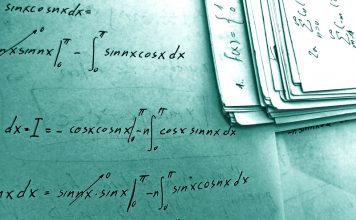 sinxcosnxdx=
nxsinnx|₀^π - ∫₀^π sinnxcosxdx
dx=I=-cosxcosnx|₀^π-n∫₀^π cosxsinnxdx
nxdx=sinnx·sinx|₀^π-n∫₀^π sinxcosnxdx
1. f(x)={0